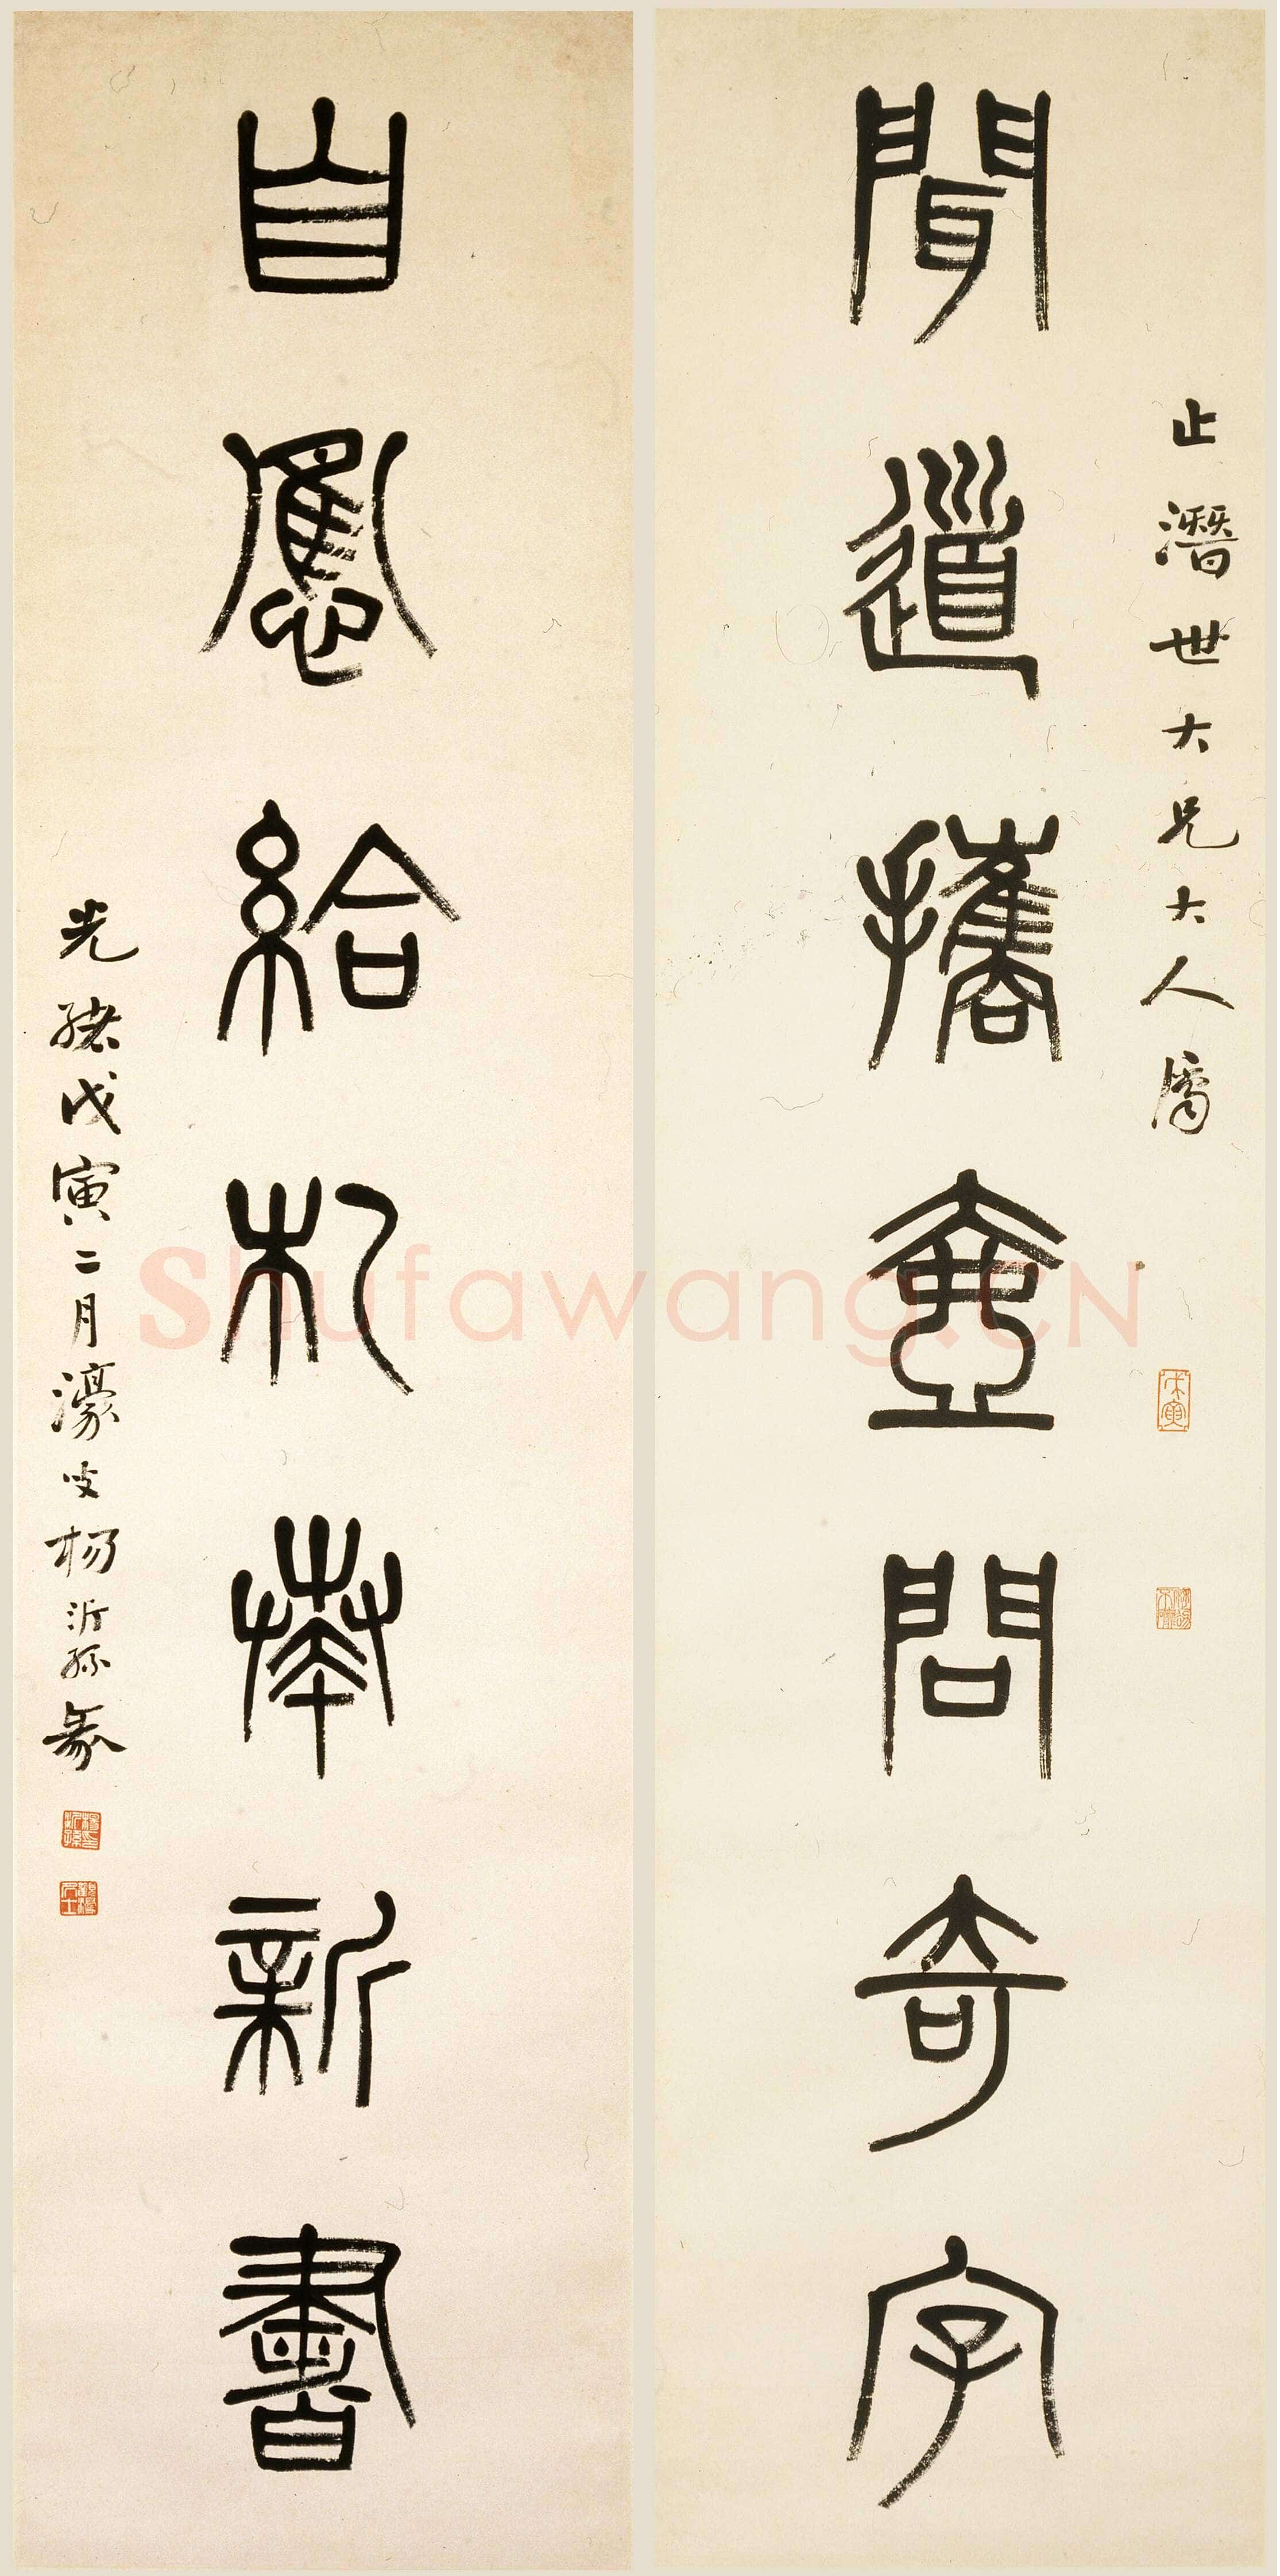 止潛世大兄大人屬
聞道攜壺問奇字
自應給札捧新書
光緒戊寅二月濠叟楊沂孫篆
shufawang.CN